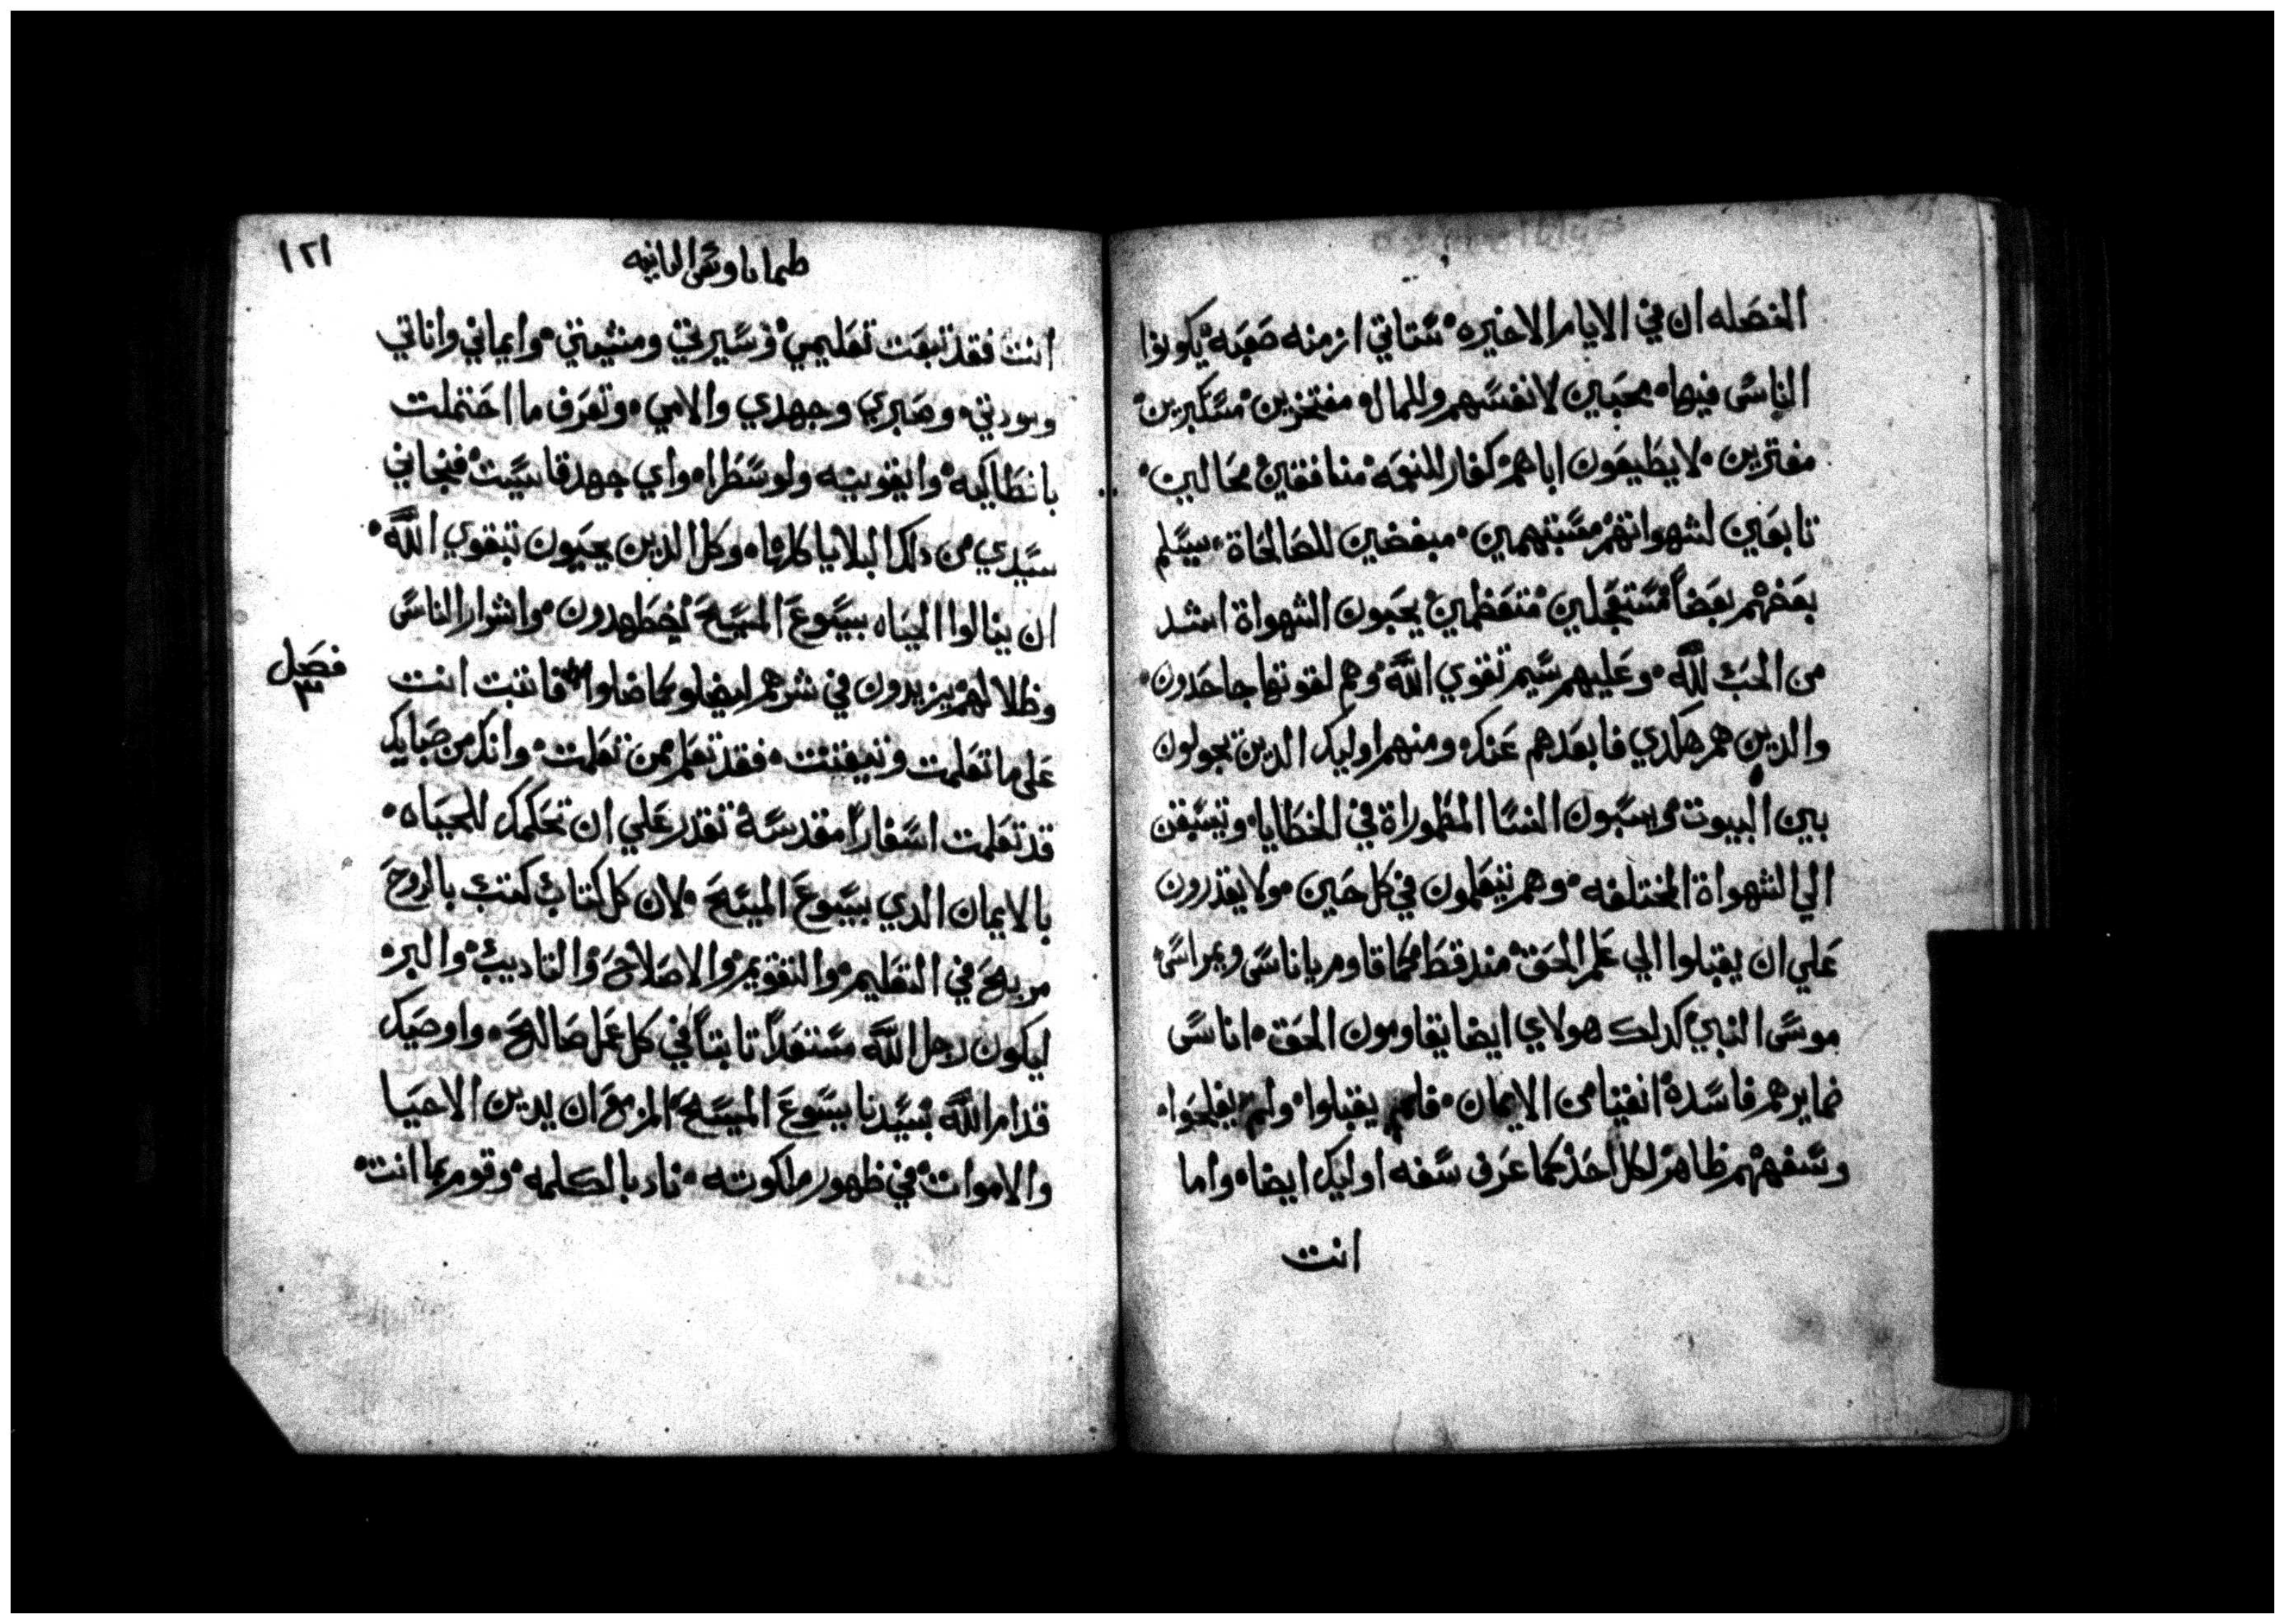 الخصله ان في الايام الاخيره ستاتي ازمنه صعبه يكونوا
الناس فيها محبين لانفسهم وللمال مفتخرين متكبرين
مفترين لا يطيعون اباهم كفار للنعمه منافقين محالين
تابعين لشهواتهم مبغضين للصالحاة يسلم
بعضهم بعضاً مستعجلين متعظمين يحبون الشهواة اشد
من الحب لله وعليهم سيم تقوي الله وهم لقوتها جاحدون
والدين هم هكدي فابعدهم عنك ومنهم اوليك الدين يجولون
بين البيوت ويسبون النسا المطموراة في الخطايا وتسبقن
الي الشهواة المختلفه وهم يتعلمون في كل حين ولا يقدرون
علي ان يقبلوا الي علم الحق مند قط كما قاوم يا ناس ويمراس
موسي النبي كدلك هولاي ايضا يقاومون الحق اناس
ضمايرهم فاسده انفيا من الايمان فلم يقبلوا ولم يفلحوا
وسفههم ظاهر لكل احد كما عرف سفه اوليك ايضا واما
انت
١٢١
طيماتاوس الثانيه
انت فقد تبعت تعليمي وسيرتي ومشيتي وايماني واناتي
ومودتي وصبري وجهدي والامي وتعرف ما احتملت
بانطاكيه وايقونيه ولوسطرا واي جهد قاسيت فنجاني
سيدي من دلك البلايا كلها وكل الدين يحبون تبقوي الله
ان ينالوا الحياه بيسوع المسيح يضطهدون واشرار الناس
وظلالهم يزيدون في شرهم ايضا كما ضلوا فاثبت انت
فصل
٣
علي ما تعلمت وتيقنت فقد تعلم ممن تعلمت وانك من صبايك
قد تعلمت اسفاراً مقدسة تقدر علي ان تحكمك للحياه
بالايمان الدي بيسوع المسيح لان كل كتاب كتب بالروح
مربح في التعليم والتقويم والاصلاح والتاديب والبر
ليكون رجل الله مستعداً تابتاً في كل عمل صالح واوصيك
قدام الله بسيدنا يسوع المسيح المزمع ان يدين الاحيا
والاموات في ظهور ملكوته ناد بالكلمه وقوم بما انت